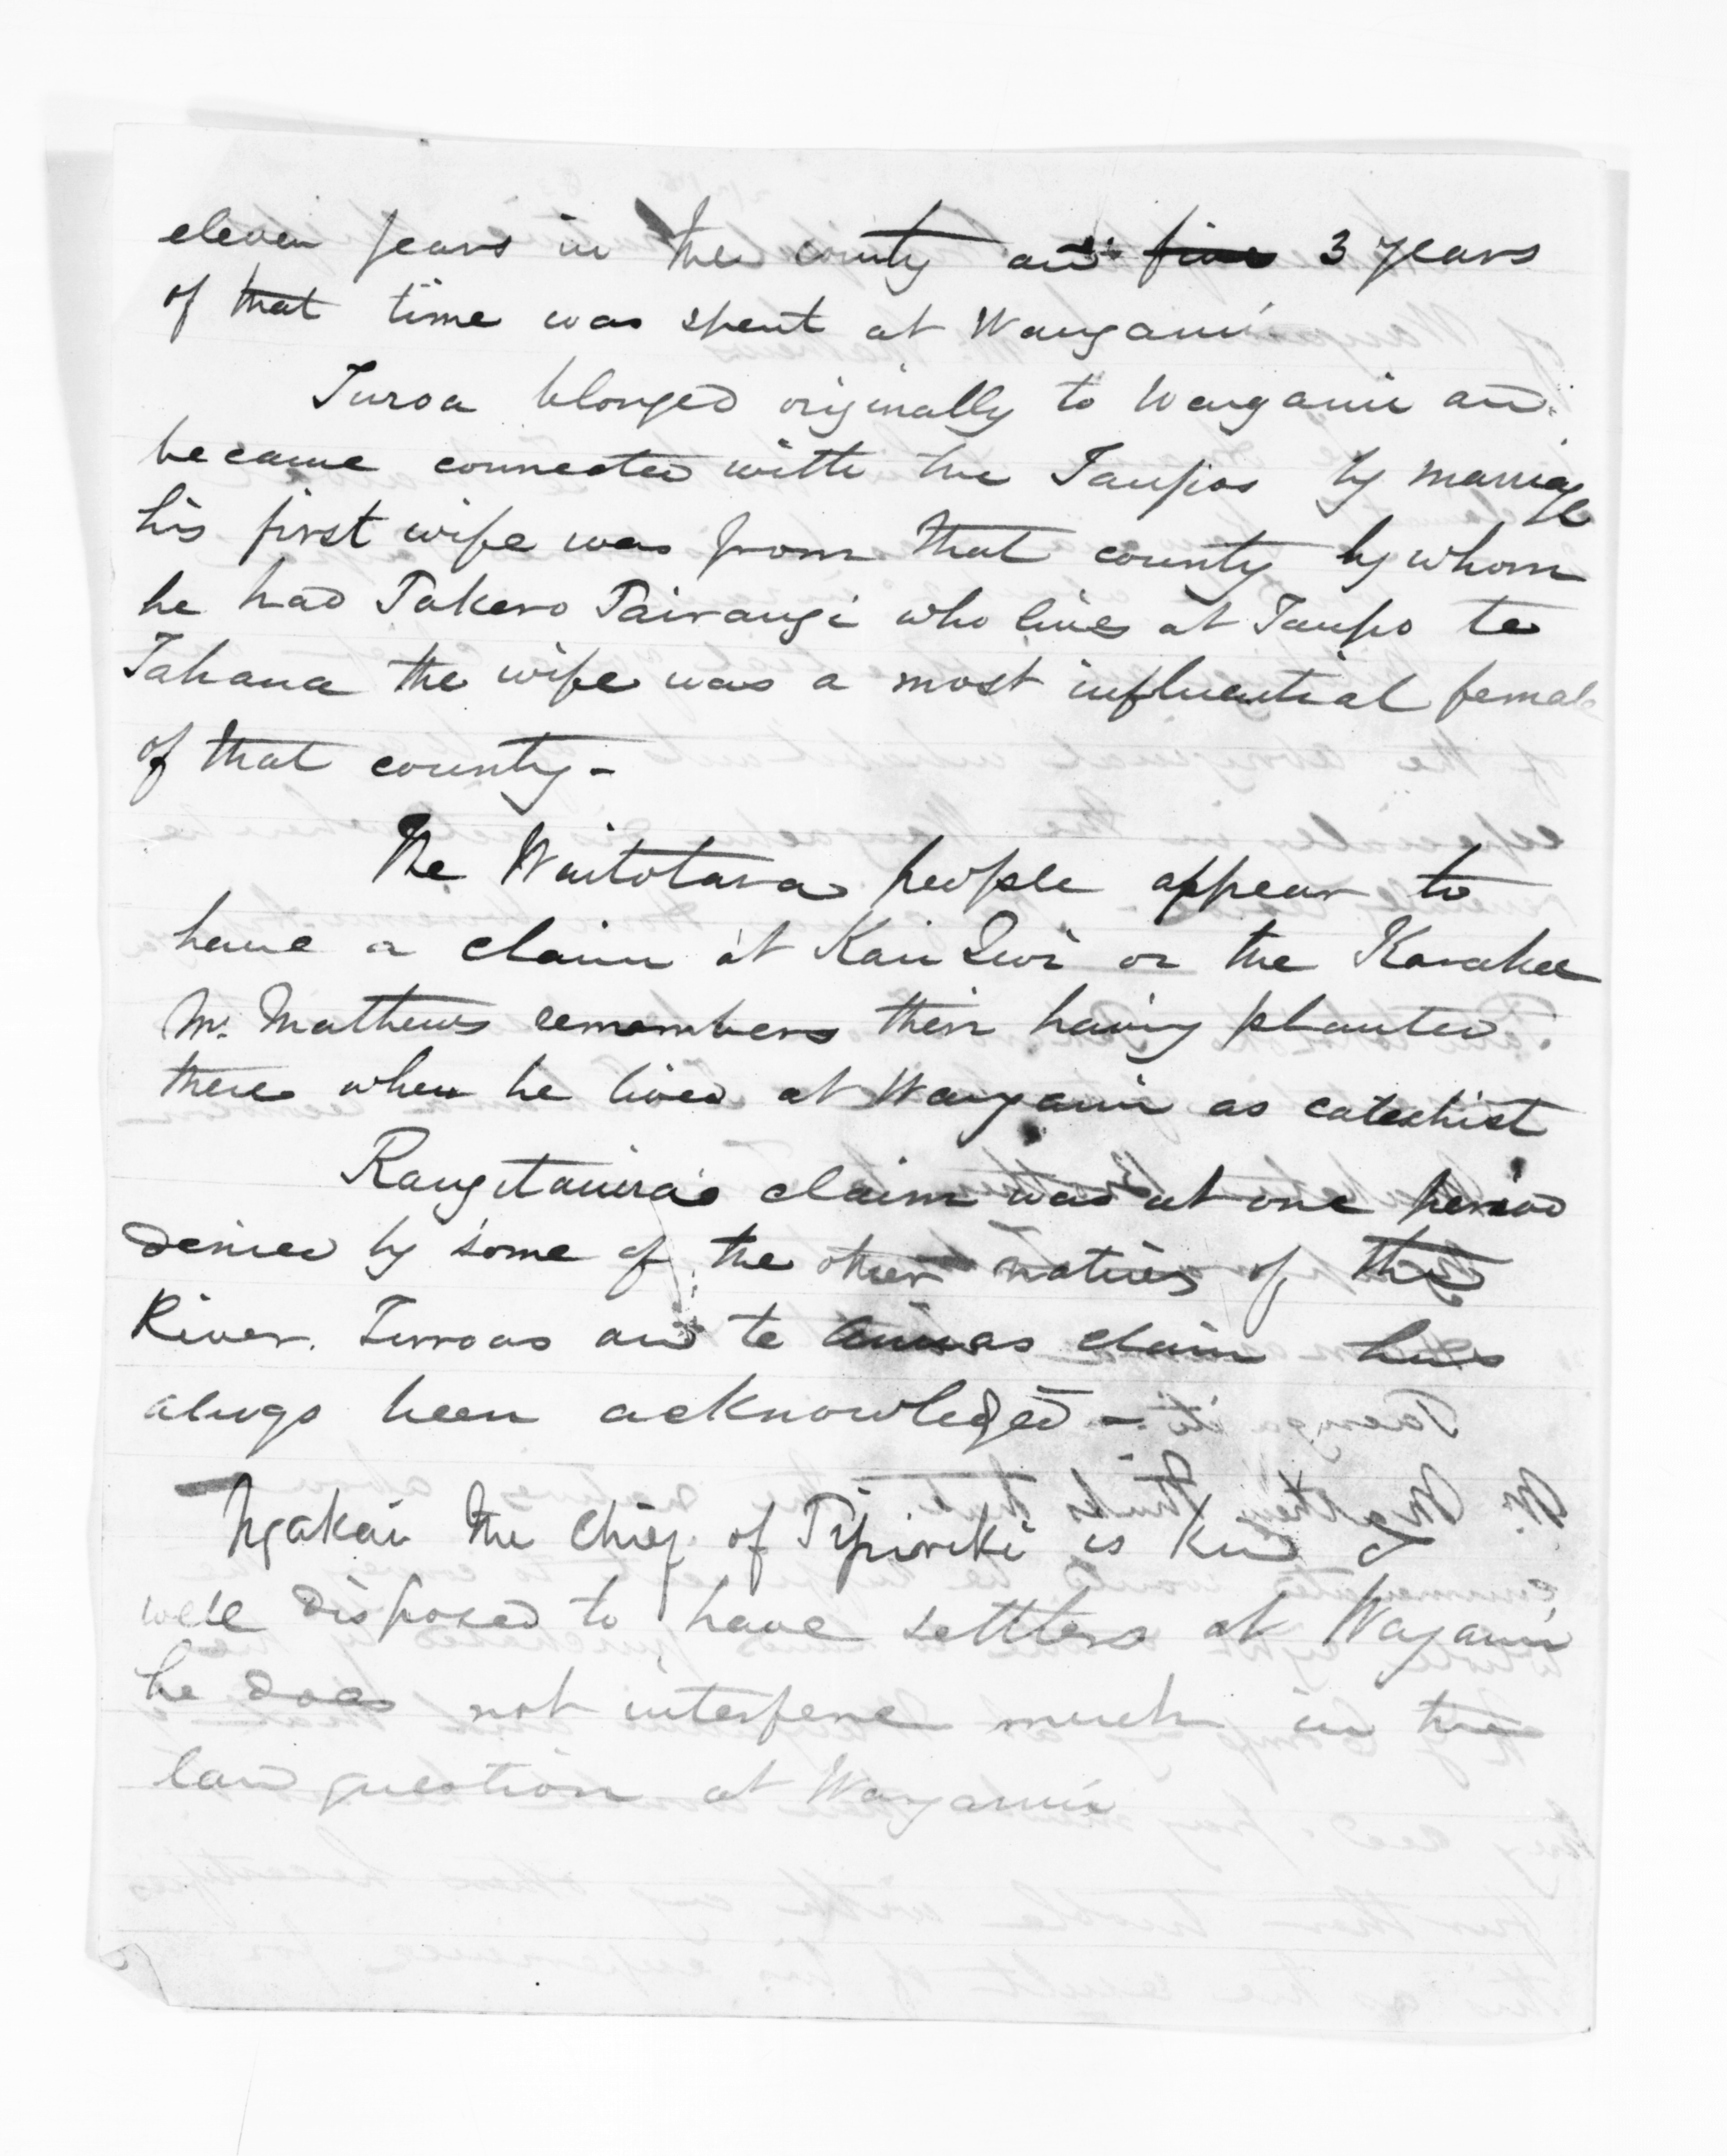 eleven years in the county and five 3 years
of that time was spent at Wanganui
Turoa blonged originally to Wanganui and
became connected with the Taupos by marriage
his first wife was from that county by whom
he had Takero Tairangi who lives at Taupo te
Tahana the wife was a most influential female
of that county -
The Waitotara people appear to
have a claim at Kai Iwi or the Karaka
Mr. Mathews remembers their having planted
there when he lived at Wanganui as catechist
Rangitauira's claim was at one period
denied by some of the other natives of the
River. Turroas and te claim has
always been acknowledged -
Ngakai the Chief of Pipiriki is kind &
well disposed to have settlers at Waganui
he does not interfere much in the
land question at Wanganui